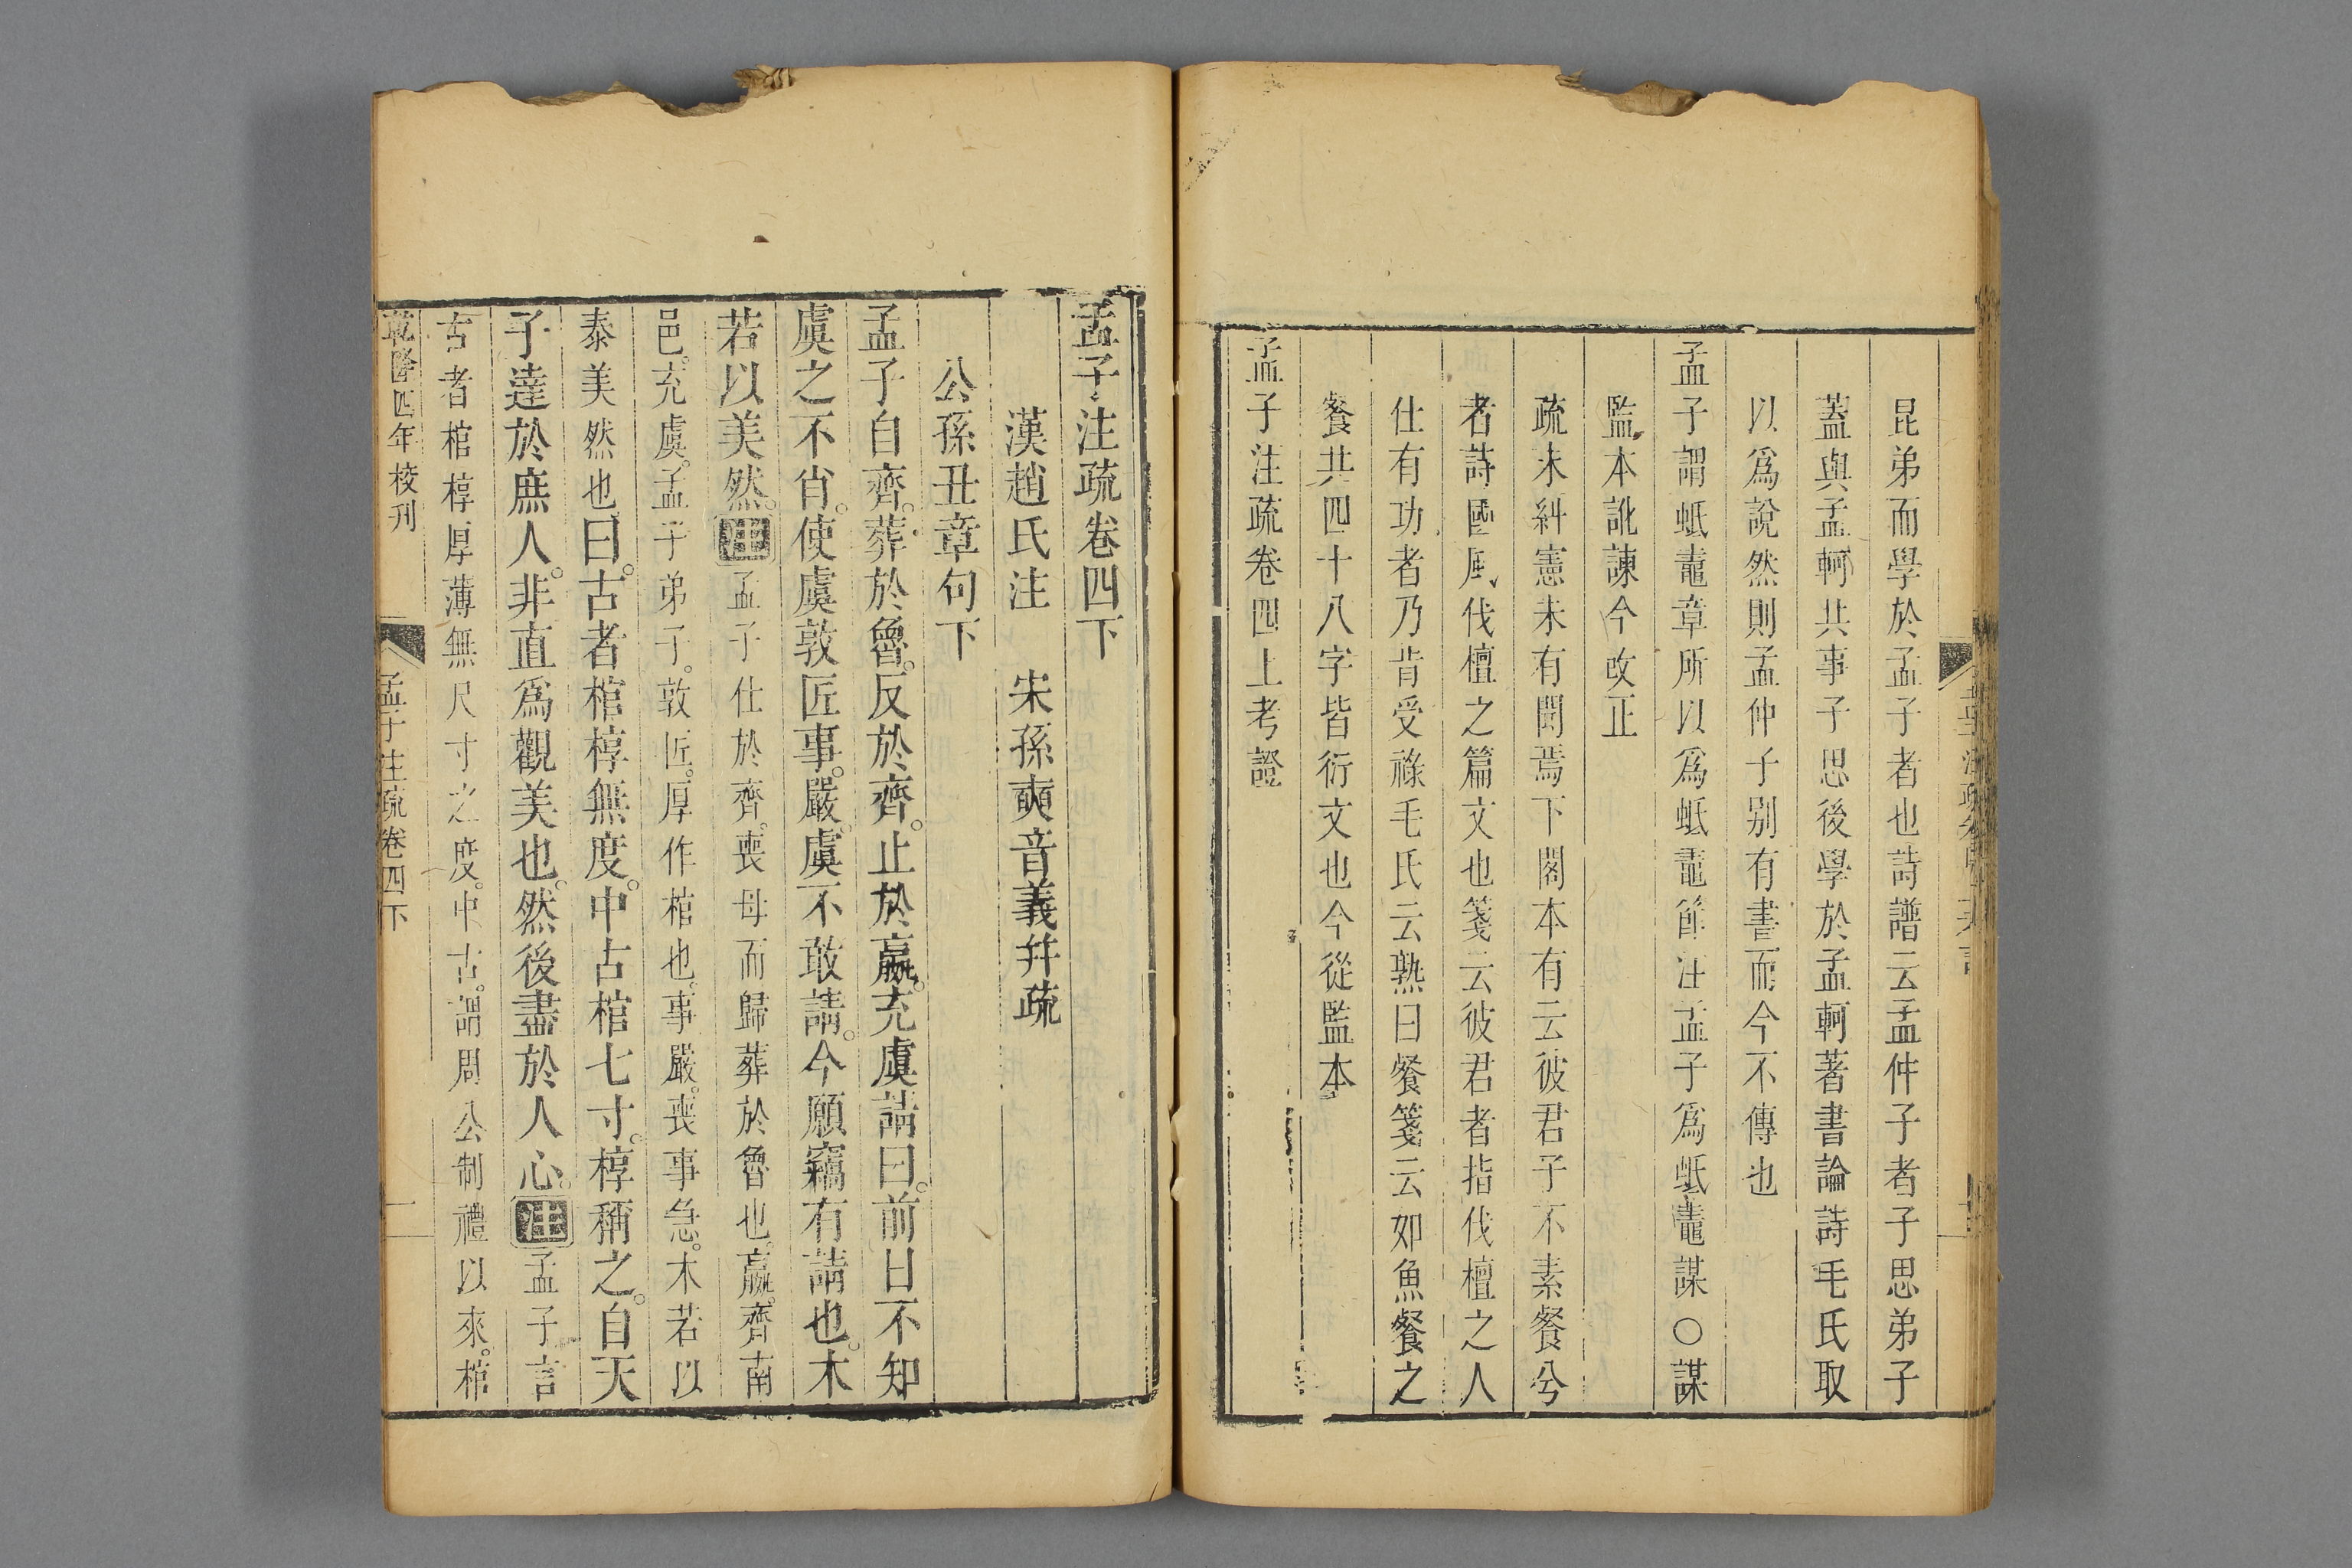 昆弟而學於孟子者也詩譜云孟仲子者子思弟子
蓋與孟軻共事子思後學於孟軻著書論詩毛氏取
以爲說然則孟仲子别有書而今不傳也
孟子謂蚳鼃章所以爲蚳鼃節注孟子爲蚳鼃謀〇謀
監本訛諫今改正
疏未糾憲未有聞焉下閣本有云彼君子不素餐兮
者詩國風伐檀之篇文也箋云彼君者指伐檀之人
仕有功者乃肯受祿毛氏云熟曰餐箋云如魚餐之
餐共四十八字皆衍文也今從監本
孟子注疏卷四上考證
孟子注疏卷四下
漢趙氏注　宋孫奭音義并疏
公孫丑章句下
孟子自齊。葬於魯。反於齊。止於嬴。充虞請曰。前日不知
虞之不肖。使虞敦匠事。嚴。虞不敢請。今願竊有請也。木
若以美然。注孟子仕於齊。喪母而歸葬於魯也。嬴。齊南
邑。充虞。孟子弟子。敦匠。厚作棺也。事嚴。喪事急。木若以
泰美然也。曰。古者棺椁無度。中古棺七寸。椁稱之。自天
子達於庶人。非直爲觀美也。然後盡於人心。注孟子言
古者棺椁厚薄無尺寸之度。中古。謂周公制禮以來。棺
乾隆四年校刊
孟子注疏卷四下
一